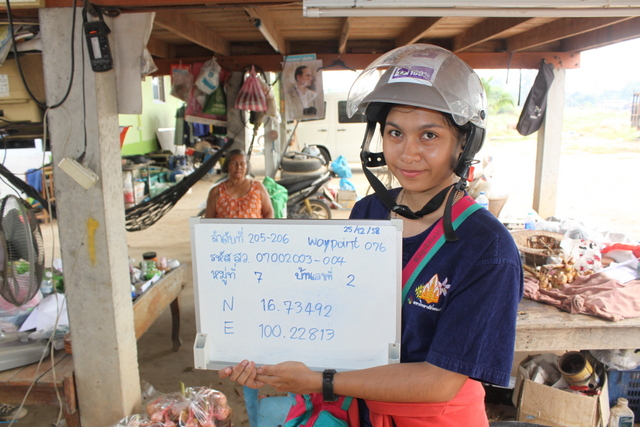 25/12/58
ลำดับที่ 205-206 waypoint 076
รหัส สว. 07002003-004
หมู่ที่ 7 บ้านเลขที่ 2
N 16.73492
E 100.22813